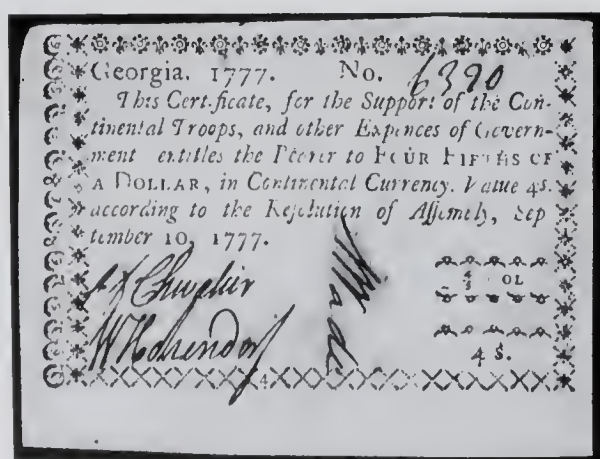 Georgia. 1777. No. 6390
This Certificate, for the Support of the Con-
tinental Troops, and other Expences of Govern-
ment entitles the Bearer to FOUR FIFTHS OF
A DOLLAR, in Continental Currency. Value 4s.
according to the Resolution of Assembly, Sep
tember 10, 1777.
Wade
4/5 DOL
W Holzendorf
4 S.
4